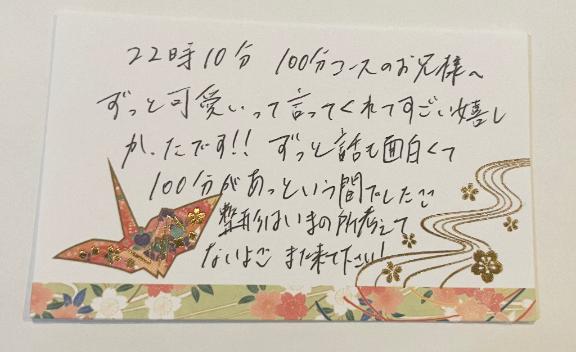 22時10分 100分コースのお兄様へ
ずっと可愛いって言ってくれてすごい嬉し
かったです!! ずっと話も面白くて
100分があっという間でした
整形はいまの所考えて
ないよ また来て下さい!